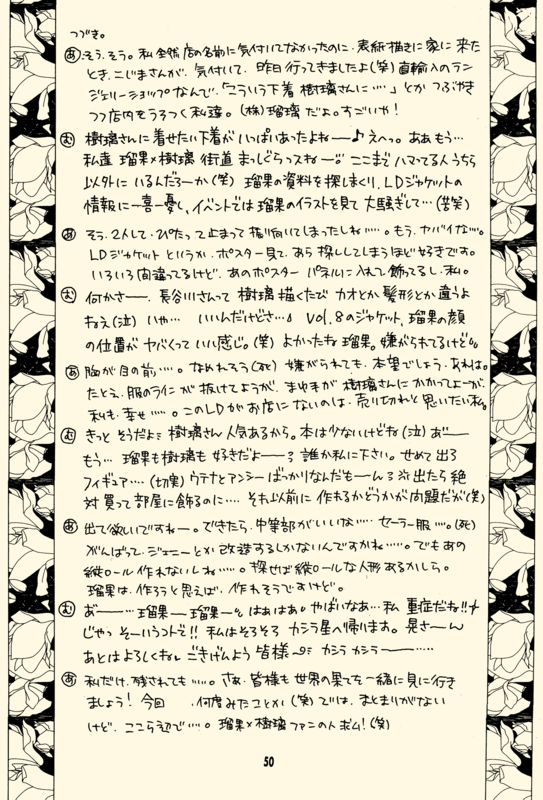 つづき。
あ そう、そう。私全然店の名前に気付いてなかったのに、表紙描きに家に来た
とき、こじまさんが、気付いて、昨日行ってきましたよ(笑)直輸入のラン
ジェリーショップなんで、「こういう下着 樹璃さんに……」とかつぶやき
つつ店内をうろつく私達。(株)瑠璃だよ。すごいや!
む 樹璃さんに着せたい下着がいっぱいあったよねー♪えへっ。ああもう…
私達 瑠果×樹璃 街道まっしぐらっスねー。ここまでハマってる人うちら
以外にいるんだろーか(笑) 瑠果の資料を探しまくり、LDジャケットの
情報に一喜一憂し、イベントでは瑠果のイラストを見て大騒ぎして…(苦笑)
あ そう、2人して、ぴたって止まって振り向いてしまったしね……。もう、ヤバイな…。
LDジャケットというか、ポスター見て、あら探ししてしまうほど好きです。
いろいろ間違ってるけど、あのポスター パネルに入れて飾ってるし、私。
む 何かさー、長谷川さんって 樹璃 描くたび カオとか髪形とか違うよ
ねぇ(泣) いや… いいんだけどさ… Vol.8のジャケット、瑠果の顔
の位置が ヤバくっていい感じ。(笑) よかったね瑠果。嫌がられてるけど
あ 胸が目の前……。なめれろう(死) 嫌がられても、本望でしょう、あれは。
たとえ、服のラインが 抜けてようが、まゆ毛が 樹璃さんにかかってよーが、
私も、幸せ……。このLDがお店にないのは、売り切れと思いたい私。
む きっと そうだよ 樹璃さん人気あるから。本は少ないけどね(泣) あ゛ー
もう… 瑠果も樹璃も 好きだよー 誰か私に下さい。せめて出ろ
フィギュア…(切実) ウテナとアンシーばっかりなんだもーん 出たら絶
対買って部屋に飾るのに… それ以前に 作れるかどうかが問題だが(笑)
あ 出て欲しいですねー。できたら、中等部がいいな…… セーラー服……(死)
がんばって、ジェニーとか 改造するしかないんですかね……。でもあの
縦ロール 作れないしね……。探せば縦ロールな人形あるかしら。
瑠果は、作ろうと思えば、作れそうですけど。
む あ゛ー… 瑠果―瑠果― はぁはぁ やばいなあ…私 重症だね!!
じゃっ そーいうコトで!! 私はそろそろ カシラ星へ帰ります。晃さーん
あとはよろしくね ごきげんよう皆様〜 カシラ カシラー……
あ 私だけ、残されても……。さぁ、皆様も 世界の果てを一緒に見に行き
ましょう! 今回 、何度みたことか(笑) では、まとまりがない
けど、ここら辺で…。瑠果×樹璃ファンの人 求ム!(笑)
50